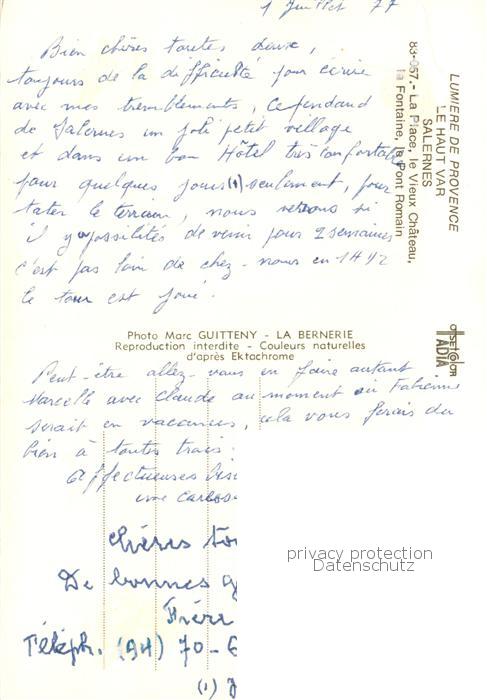 1 Juillet 77
Bien chères toutes deux,
toujours de la difficulté pour écrire
avec mes tremblements, Cependand
de Salernes un joli petit village
et dans un bon Hôtel très confortable
pour quelques jours (1) seulement, pour
tater le terrain, nous verrons si
il y a possilités de venir pour 2 semaines
c'est pas loin de chez-nous en 1H 1/2
le tour est joué.
LUMIERE DE PROVENCE
LE HAUT VAR
SALERNES
83-057.- La Place, le Vieux Château,
la Fontaine, le Pont Romain
Photo Marc GUITTENY - LA BERNERIE
Reproduction interdite - Couleurs naturelles
d'après Ektachrome
Peut-être allez-vous en faire autant
Marcelle avec Claude au moment où Fabienne
serait en vacances, cela vous ferais du
bien à toutes trois.
Affectueuses
chères to
De bonnes
Frère
Téléph. (94) 70-6
(1)
privacy protection
Datenschutz